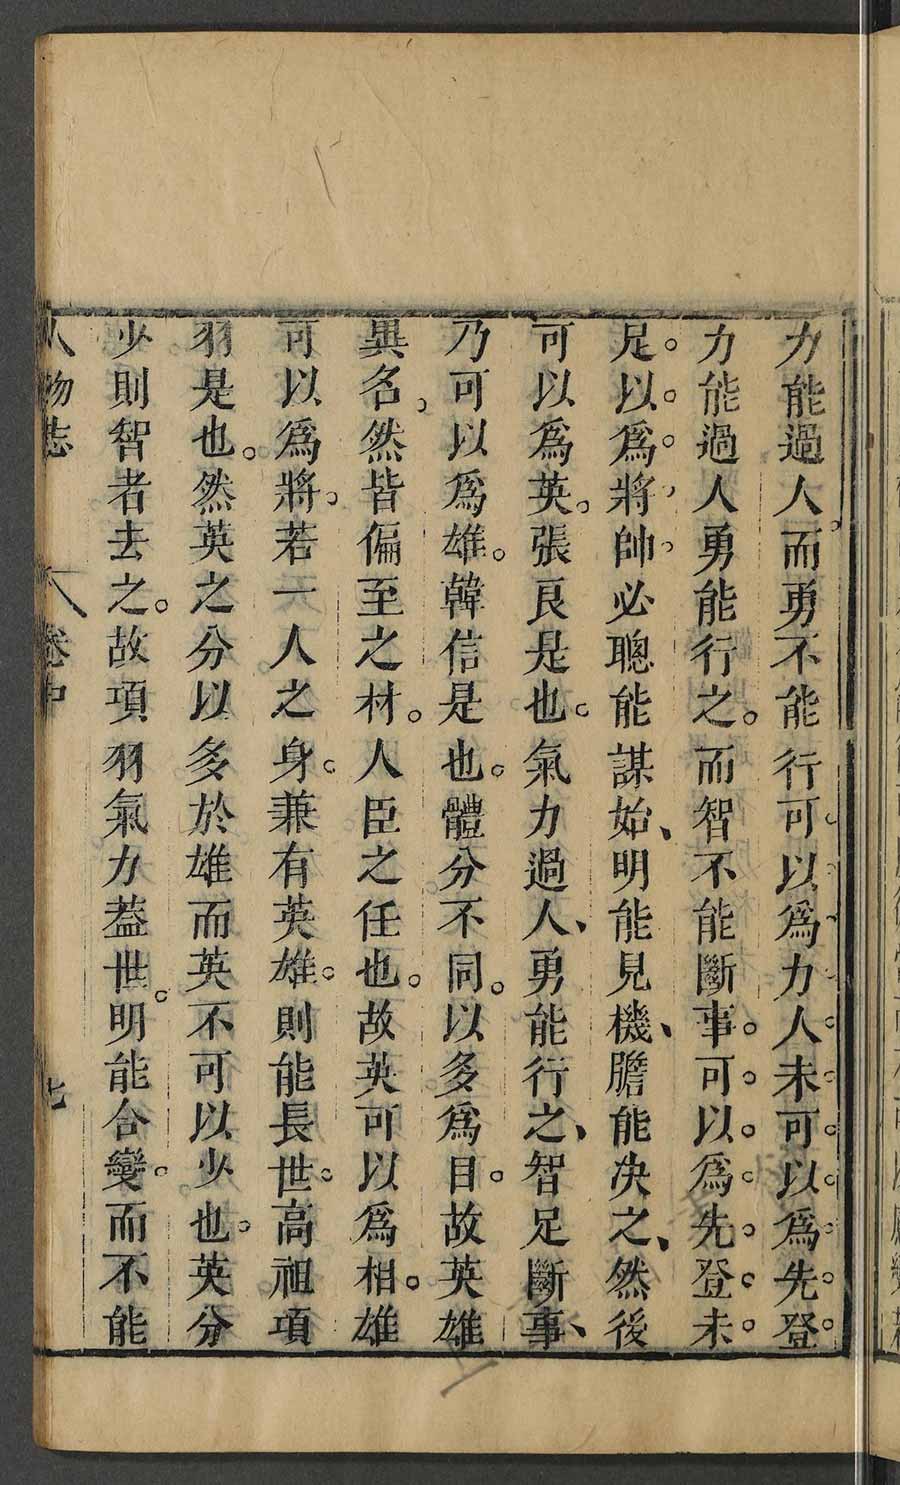 力能過人。而勇不能行可以爲力人未可以爲先登。
力能過人勇能行之。而智不能斷事。可以爲先登未
足以爲將帥必聰能謀始、明能見機、膽能决之、然後
可以爲英。張良是也。氣力過人、勇能行之、智足斷事、
乃可以爲雄。韓信是也。體分不同。以多爲目。故英雄
異名。然皆偏至之材。人臣之任也。故英可以爲相。雄
可以爲將。若一人之身。兼有英雄。則能長世。高祖項
羽是也。然英之分以多於雄而英不可以少也。英分
少則智者去之。故項羽氣力葢世。明能合變。而不能
人物志 卷中 七